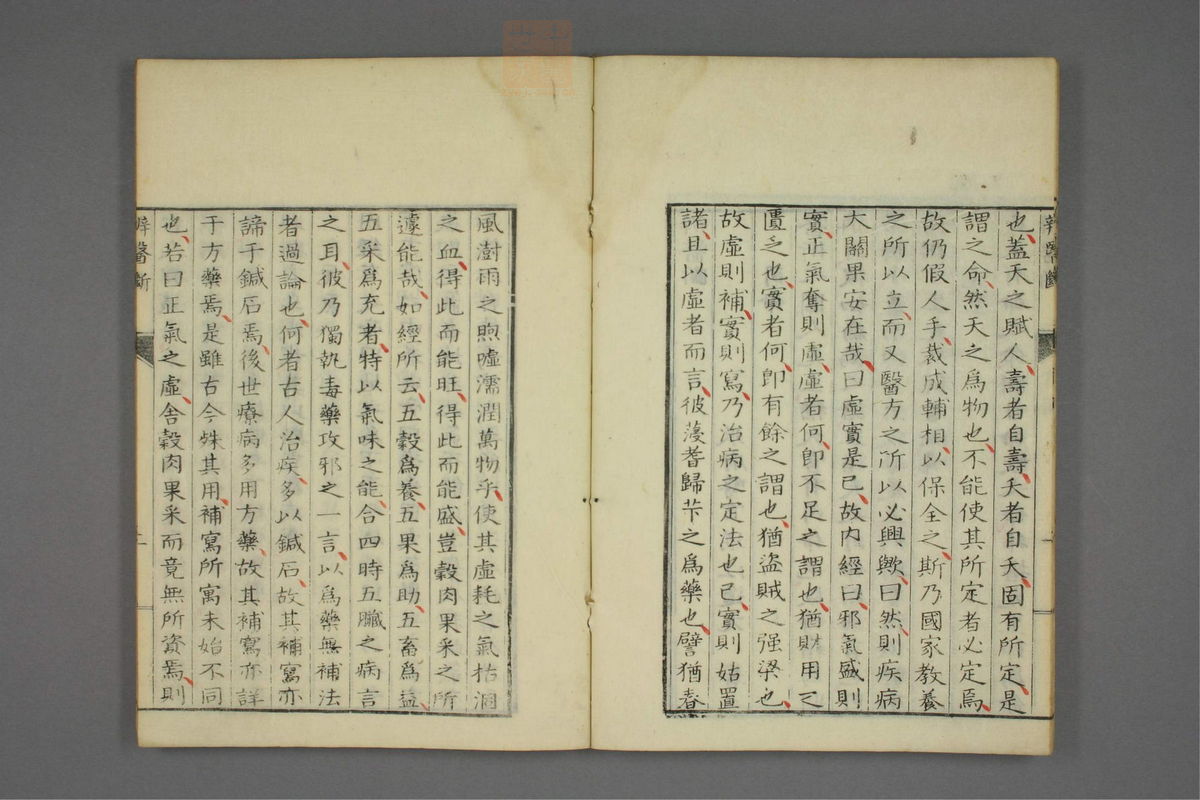 也蓋天之賦人壽者自壽夭者自夭固有所定是
謂之命然天之爲物也不能使其所定者必定焉
故仍假人手裁成輔相以保全之斯乃國家教養
之所以立而又醫方之所以必興歟曰然則疾病
大關果安在哉曰虛實是已故内經曰邪氣盛則
實正氣奪則虛虛者何卽不足之謂也猶財用之
匱乏也實者何卽有餘之謂也猶盜賊之强梁也
故虛則補實則寫乃治病之定法也已實則姑置
諸且以虛者而言彼蓡耆歸芐之爲藥也譬猶春
風澍雨之煦噓濡潤萬物乎使其虛耗之氣枯涸
之血得此而能旺得此而能盛豈穀肉果采之所
遽能哉如經所云五穀爲養五果爲助五畜爲益
五采爲充者特以氣味之能合四時五臟之病言
之耳彼乃獨執毒藥攻邪之一言以爲藥無補法
者過論也何者古人治疾多以鍼石故其補寫亦
諦于鍼石焉後世療病多用方藥故其補寫亦詳
于方藥焉是雖古今殊其用補寫所寓未始不同
也若曰正氣之虛舍穀肉果采而竟無所資焉則
辨醫斷